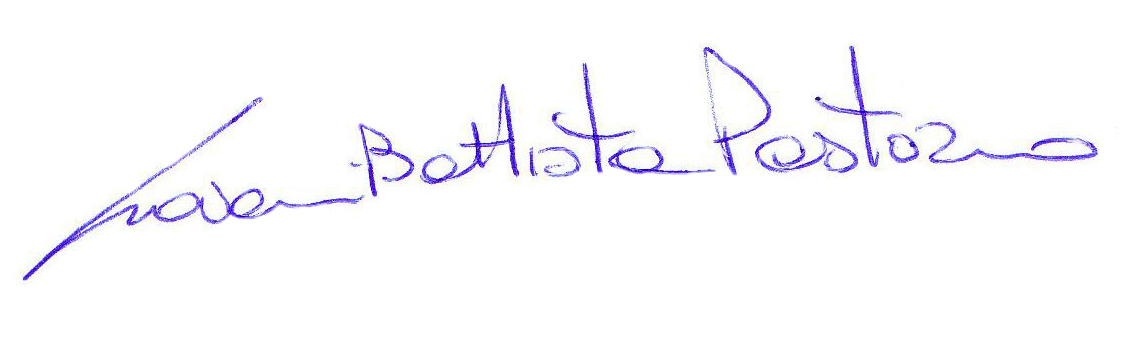 Giovan Battista Pastorino